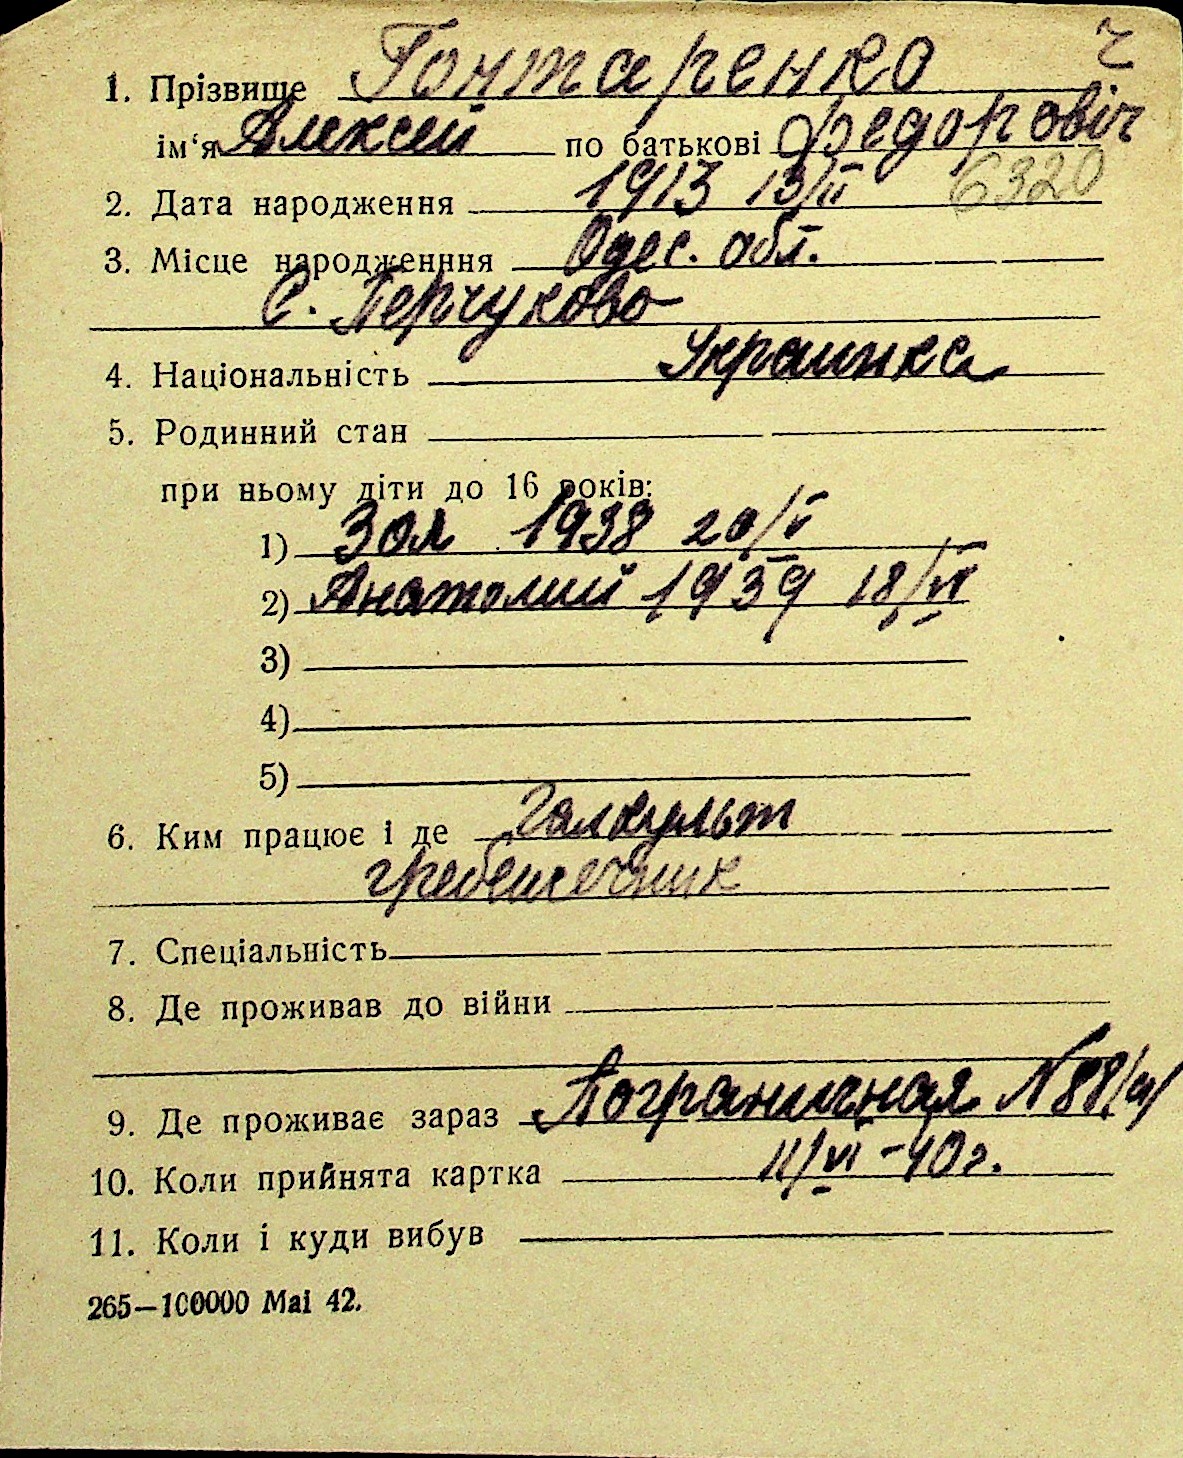 ч
1. Прізвище Гонтаренко
ім‘я Алексей по батькові Федоровіч
2. Дата народження 1913 13/II 6320
3. Місце народженння Одес. обл.
С. Перчуково
4. Національність Украинка
5. Родинний стан
при ньому діти до 16 років:
1) Зоя 1938 20/V
2) Анатолий 1939 18/VI
3)
4)
5)
6. Ким працює і де Галкульт
гребенечник
7. Спеціальність
8. Де проживав до війни
9. Де проживає зараз Пограничная N 88
10. Коли прийнята картка 11/VI -40 г.
11. Коли і куди вибув
265—100000 Mai 42.